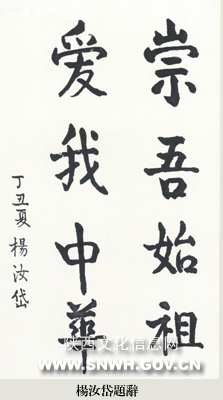 崇吾始祖
爱我中華
丁丑夏 楊汝岱
陕西文化信息网
WWW.SNWH.GOV.CN
楊汝岱題辭